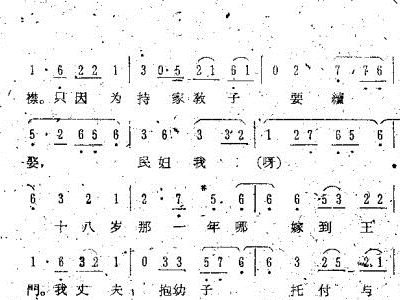 1· 6 2 2 1 | 3 0·5 2 1 6 1 | 0 2 7·7 6
襟。只因为持家教子要续
5·2 6 6 6 | 3·6 3 3 2 | 1 2 7 6 5 6
娶，民妇我(呀)
6 3 2 1 | 2·7 5 6 | 6 6 5 3 2 2
十八岁那一年哪嫁到王
1·6 3 2 1 | 0 3 3 5 7 6 6 | 6 3 2 5 2 1
門。我丈夫，抱幼子托付与